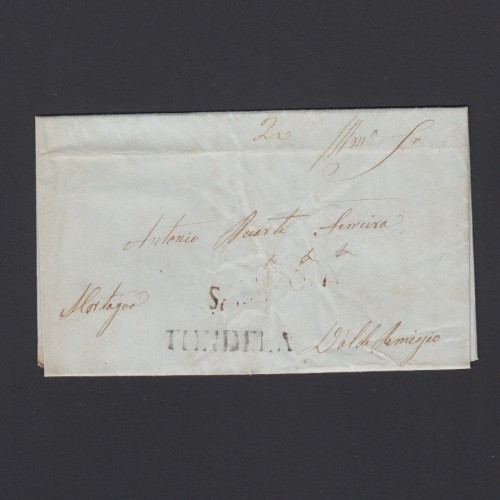 20 Illmo Sr
Antonio Duarte Ferreira
Mortagoa
TONDELA
Val de Remigio